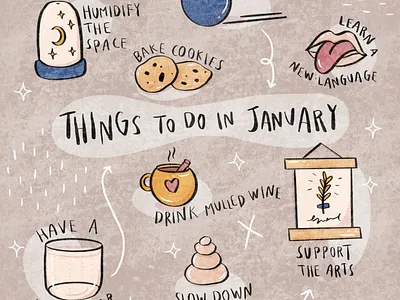 HUMIDIFY
THE
SPACE
BAKE COOKIES
LEARN A
NEW LANGUAGE
THINGS TO DO IN JANUARY
DRINK MULLED WINE
HAVE A
SUPPORT
THE ARTS
SLOW DOWN